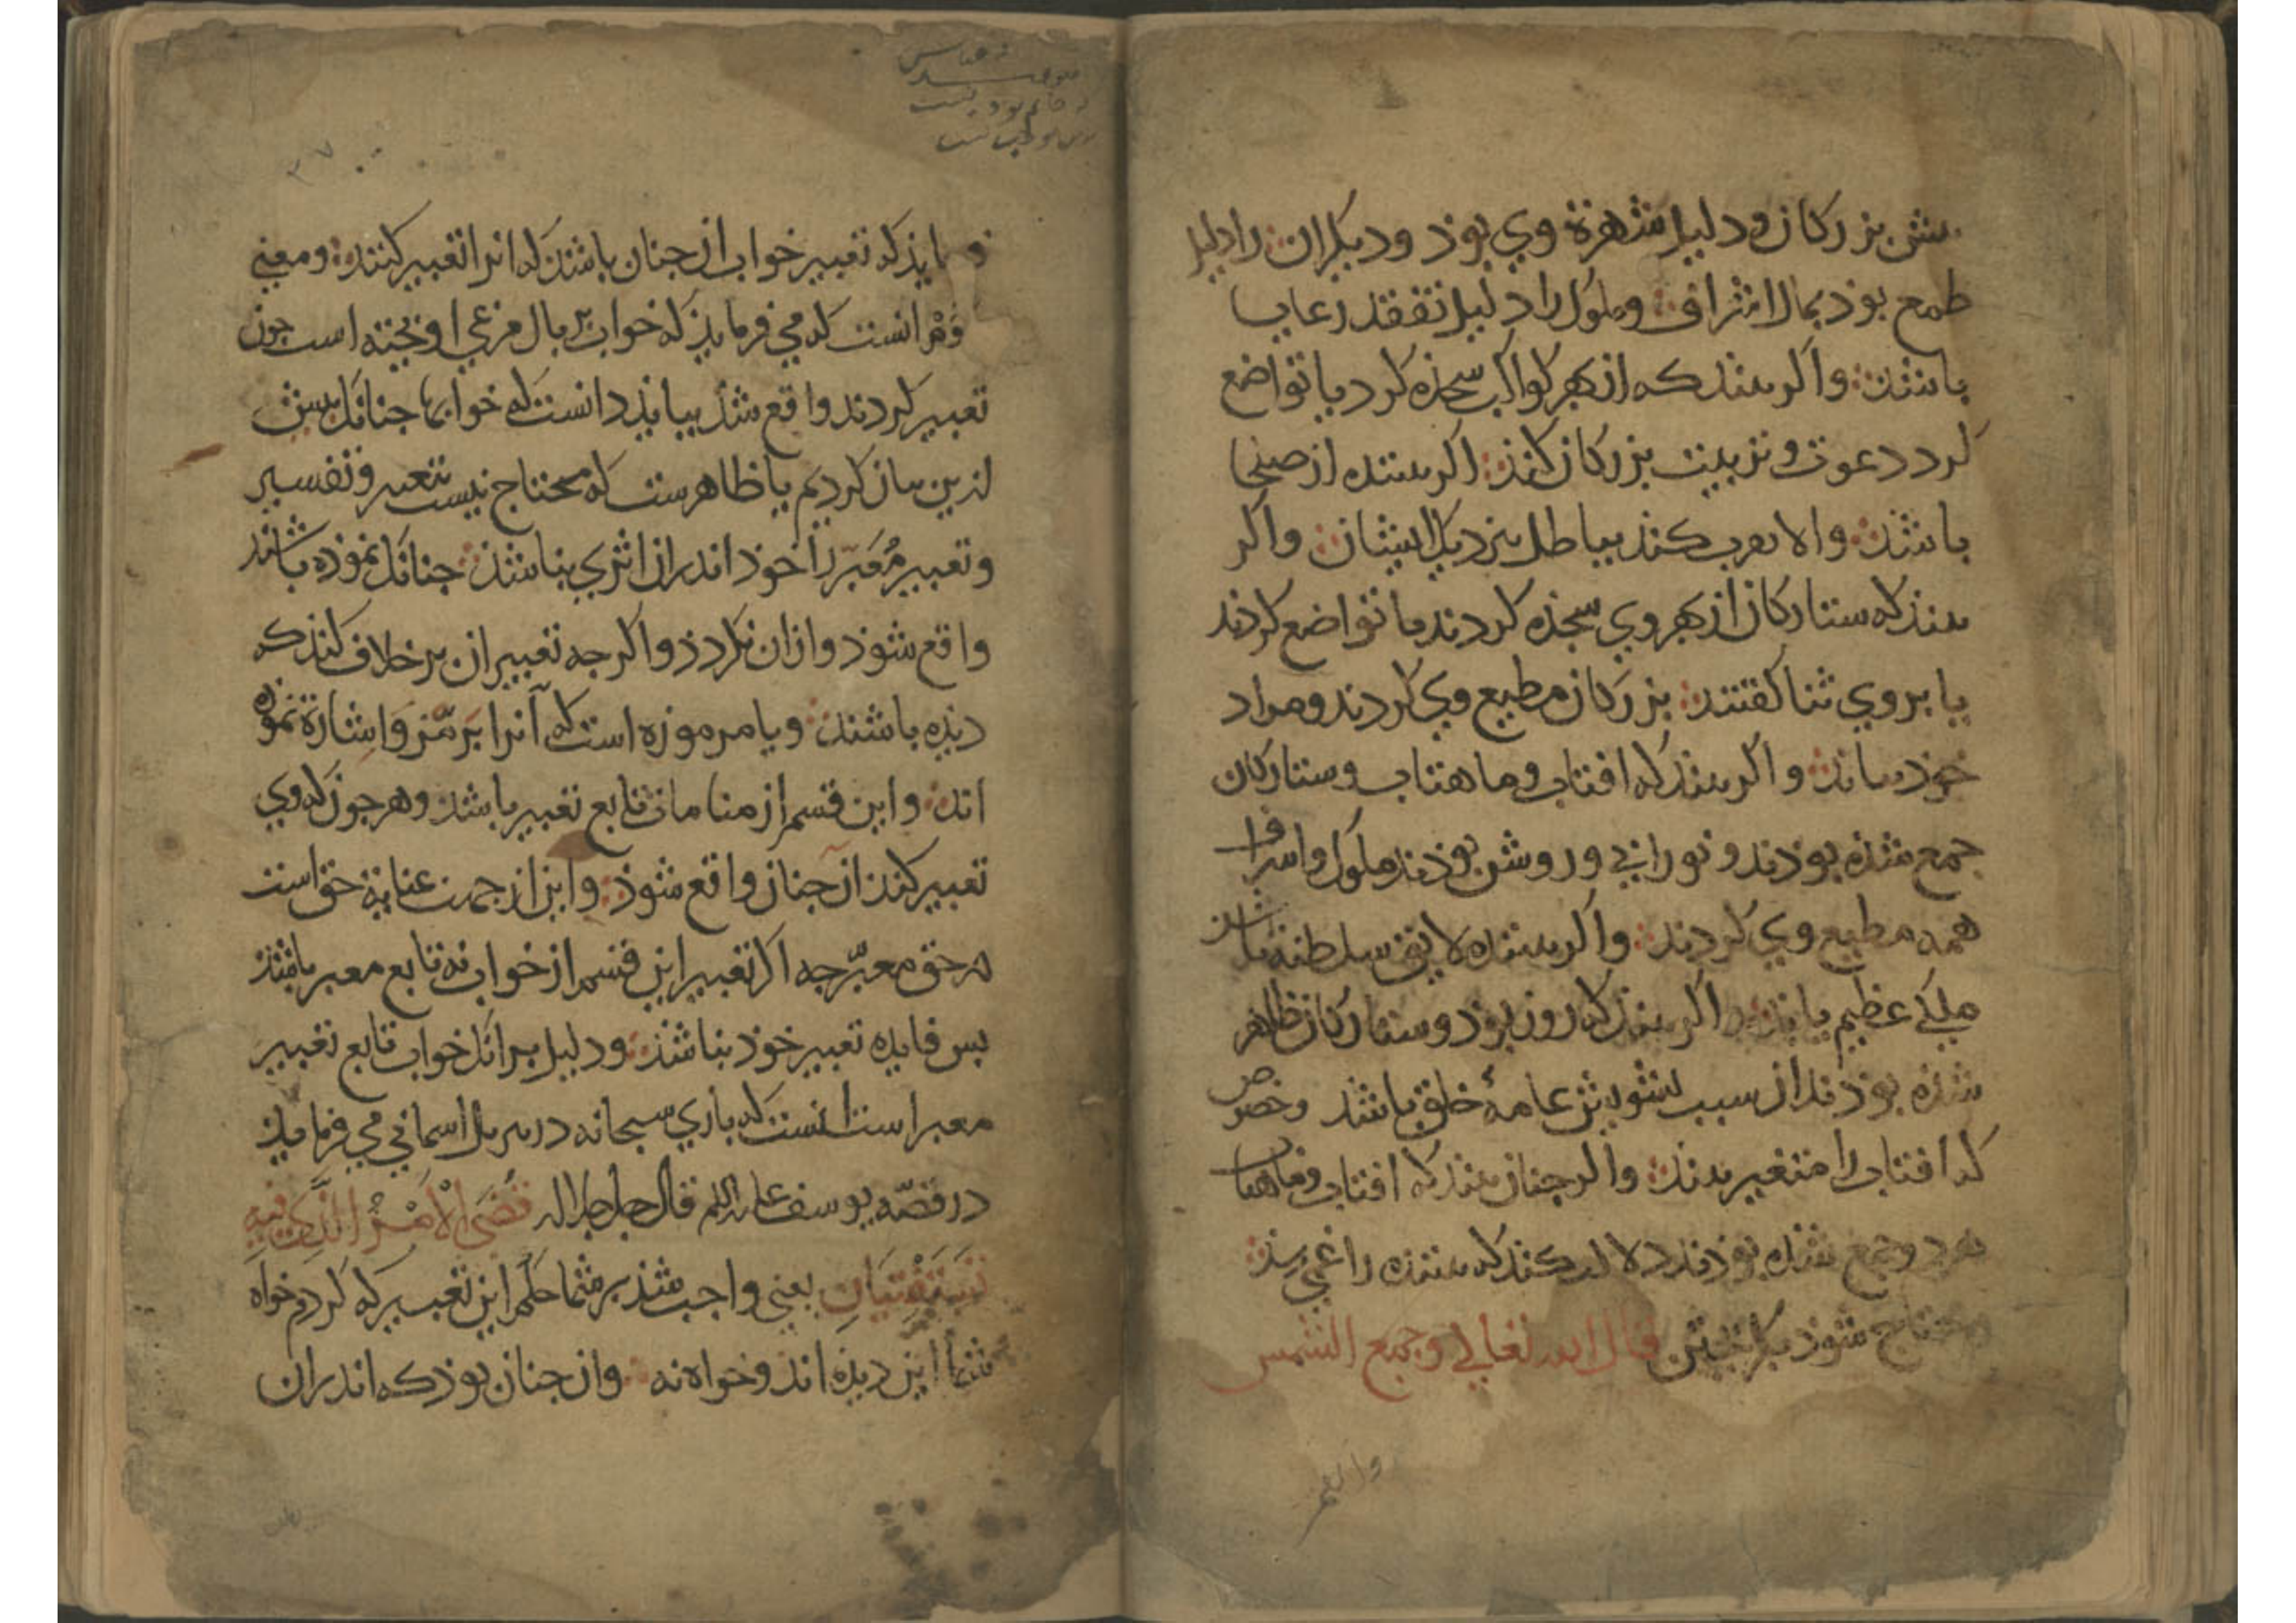 بزرکان ودلیل شهرة وی بوذ ودیکران را دلیل
طمع بوذ بمال اشراف وملوک را دلیل تفقد رعایا
باشذ واکر بیند که از بهر کواکب سجذه کرد یا تواضع
کرد دعوت و تربیت بزرکان کنذ اکر بیننده از صلحا
باشذ والا تقرب کنذ بباطل بنزدیک ایشان واکر
بینذ که ستارکان از بهر وی سجذه کردند یا تواضع کردند
یا بر وی ثنا کفتند بزرکان مطیع وی کردند ومراد
خوذ بیابذ واکر بینذ که افتاب وماهتاب وستارکان
جمع شذه بوذند و نورانی و روشن بوذند ملوک واشراف
همه مطیع وی کردند واکر بیننده لایق سلطنة باشذ
ملکی عظیم یابذ اکر بینذ که روز بوذ وستارکان ظاهر
شذه بوذند از سبب تشویش عامهٔ خلق باشذ وخصوص
که افتاب را متغیر بیند واکر چنان بیند که افتاب وماهتاب
هر دو جمع شذه بوذند دلالت کنذ که بیننده را غمی رسذ
محتاج شوذ بکریختن قال الله تعالی وجمع الشمس
والقمر
یابذ که تعبیر خواب از جنان باشذ که انرا تعبیر کنند ومعنی
انست که می فرمایذ که خواب بر بال مرغی اویخته است جون
تعبیر کردند واقع شذ ببایذ دانست که خوابها جنانک بیش
ازین بیان کردیم یا ظاهرست که محتاج نیست بتعبیر وتفسیر
وتعبیر مُعَبّر را خوذ اندران اثری نباشذ جنانک نموذه باشند
واقع شوذ وازان نکردذ واکرجه تعبیر ان بر خلاف کنذ که
دیذه باشند ویا مرموزه است که آنرا برمز واشارة نموذه
اند واین قسم از منامات تابع تعبیر باشذ وهر جون که وی
تعبیر کنذ ان جنان واقع شوذ واین از جهت عنایة حق است
در حق معبّر جه اکر تعبیر این قسم از خواب نه تابع معبر باشذ
بس فایده تعبیر خوذ نباشذ ودلیل بر انک خواب تابع تعبیر
معبر است انست که باری سبحانه در تنزیل اسمانی می فرمایذ
در قصّه یوسف علیه السلم قال جل جلاله قُضِیَ الْاَمْرُ الَّذی فیهِ
تَسْتَفْتِیَانِ یعنی واجب شذ بر شما حکم این تعبیر که کردم خواه
شما این دیذه اند وخواه نه وان جنان بوذ که اندران